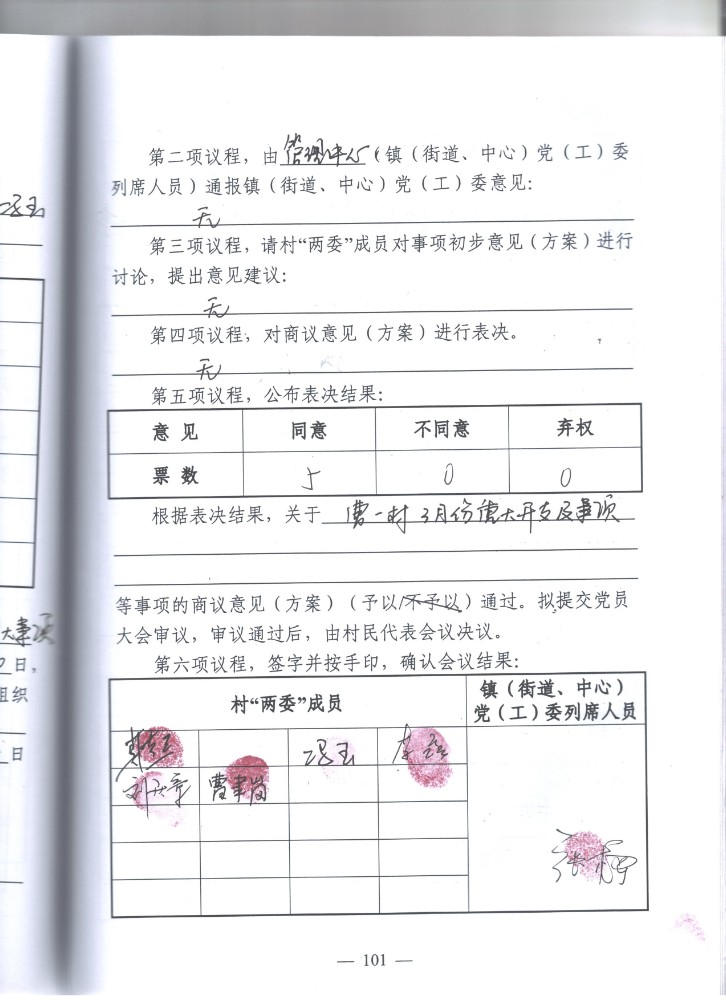 第二项议程，由管理中心（镇（街道、中心）党（工）委
列席人员）通报镇（街道、中心）党（工）委意见：
无
第三项议程，请村“两委”成员对事项初步意见（方案）进行
讨论，提出意见建议：
无
第四项议程，对商议意见（方案）进行表决。
无
第五项议程，公布表决结果：
意 见 同意 不同意 弃权
票 数 5 0 0
根据表决结果，关于 曹一村3月份重大开支及事项
等事项的商议意见（方案）（予以/不予以）通过。拟提交党员
大会审议，审议通过后，由村民代表会议决议。
大事项
日，
第六项议程，签字并按手印，确认会议结果：
组织
日
村“两委”成员 镇（街道、中心）
党（工）委列席人员
冯玉
曹
— 101 —